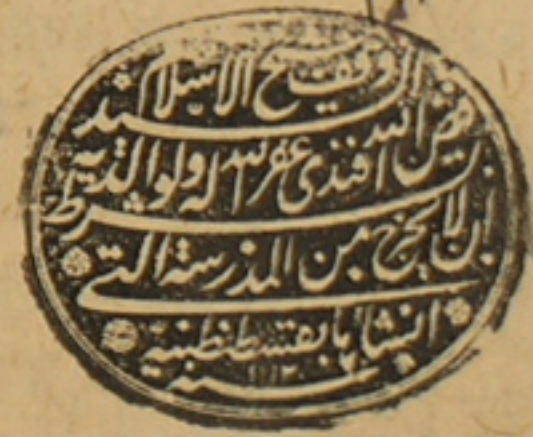 وقف شيخ الاسلام السيد
فيض الله افندى غفر الله له ولوالديه
بشرط أن لا يخرج من المدرسة التى
انشأها بقسطنطينية
سنة ١١١٢